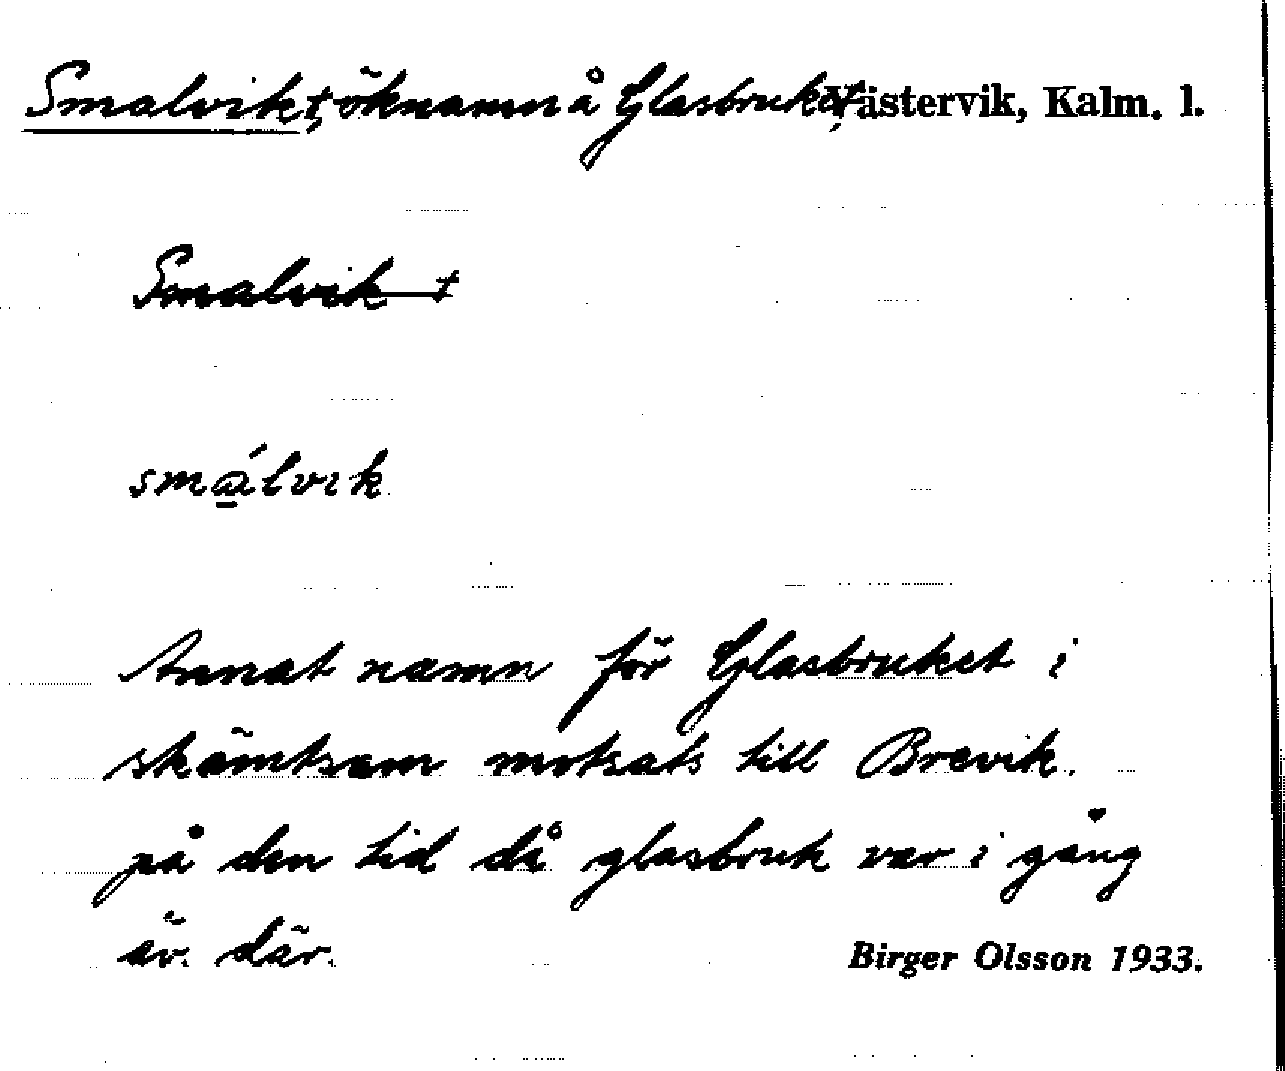 Smalvik †, öknamn å Glasbruket, Västervik, Kalm. l.
Smalvik †
smálvık
Annat namn för Glasbruket i
skämtsam motsats till Brevik.
på den tid då glasbruk var i gång
äv. där.
Birger Olsson 1933.